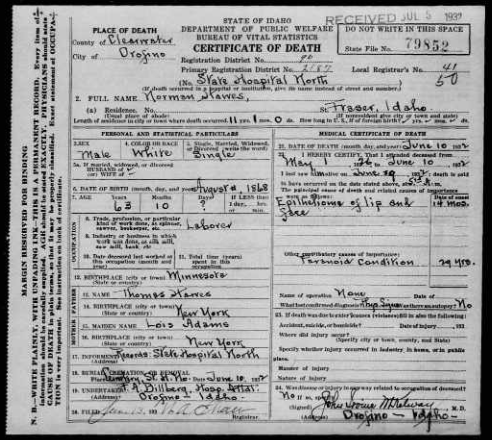 STATE OF IDAHO
DEPARTMENT OF PUBLIC WELFARE
BUREAU OF VITAL STATISTICS
CERTIFICATE OF DEATH
RECEIVED JUL 5 1932
DO NOT WRITE IN THIS SPACE
State File No. 79852
PLACE OF DEATH
County of Clearwater
City of Orofino
Registration District No.
Primary Registration District No. 2187
Local Registrar's No. 41
50
No. State Hospital North
(If death occurred in a hospital or institution, give its name instead of street and number.)
2. FULL NAME Norman Hawes,
(a) Residence. No. St. Fraser, Idaho.
(Usual place of abode) (If nonresident give city or town and state)
Length of residence in city or town where death occurred 11 yrs. mos. 0 ds. How long in U. S., if of foreign birth? yrs. mos. ds.
PERSONAL AND STATISTICAL PARTICULARS
3. SEX Male
4. COLOR OR RACE White
5. Single, Married, Widowed, or Divorced (write the word) Single
5a. If married, widowed, or divorced
HUSBAND of
(or) WIFE of
6. DATE OF BIRTH (month, day, and year) August 1868
7. AGE Years 63 Months 10 Days ? If LESS than 1 day, hrs. or min.
OCCUPATION
8. Trade, profession, or particular kind of work done, as spinner, sawyer, bookkeeper, etc. Laborer
9. Industry or business in which work was done, as silk mill, saw mill, bank, etc
10. Date deceased last worked at this occupation (month and year)
11. Total time (years) spent in this occupation
12. BIRTHPLACE (city or town) Minnesota
(State or country)
FATHER
13. NAME Thomas Hawes
14. BIRTHPLACE (city or town) New York
(State or country)
MOTHER
15. MAIDEN NAME Lois Adams
16. BIRTHPLACE (city or town) New York
(State or country)
17. INFORMANT Records State Hospital North
18. BURIAL, CREMATION, OR REMOVAL
Date June 10, 1932
19. UNDERTAKER A. Dillberg, Hosp. Attd.
Orofino - Idaho.
20. FILED June 13, 193
MEDICAL CERTIFICATE OF DEATH
21. DATE OF DEATH (month, day, and year) June 10 1932
22. I HEREBY CERTIFY, That I attended deceased from
May 1 to June 10 1932
I last saw him alive on June 1932 death is said
to have occurred on the date stated above, at m.
The principal cause of death and related causes of importance were as follows:
Epithelioma of lip and face 14 mos.
Other contributory causes of importance:
Paranoid Condition 29 yrs.
Name of operation None Date of
What test confirmed diagnosis? Was there an autopsy? No
23. If death was due to external causes (violence) fill in also the following:
Accident, suicide, or homicide? Date of injury 193
Where did injury occur?
(Specify city or town, county, and State)
Specify whether injury occurred in industry, in home, or in public place.
Manner of injury
Nature of injury
24. Was disease or injury in any way related to occupation of deceased? No
If so, specify
(Signed) M.D.
Orofino - Idaho -
MARGIN RESERVED FOR BINDING
N. B.—WRITE PLAINLY, WITH UNFADING INK—THIS IS A PERMANENT RECORD. Every item of information should be carefully supplied. AGE should be stated EXACTLY. PHYSICIANS should state CAUSE OF DEATH in plain terms, so that it may be properly classified. Exact statement of OCCUPATION is very important. See instruction on back of certificate.